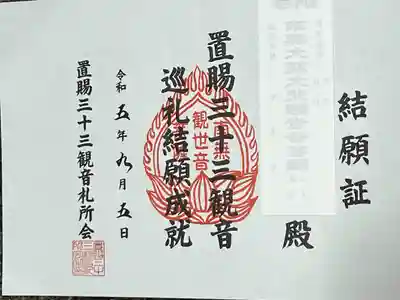 結願証
殿
置賜三十三観音
巡礼結願成就
令和五年九月五日
置賜三十三観音札所会
観世音